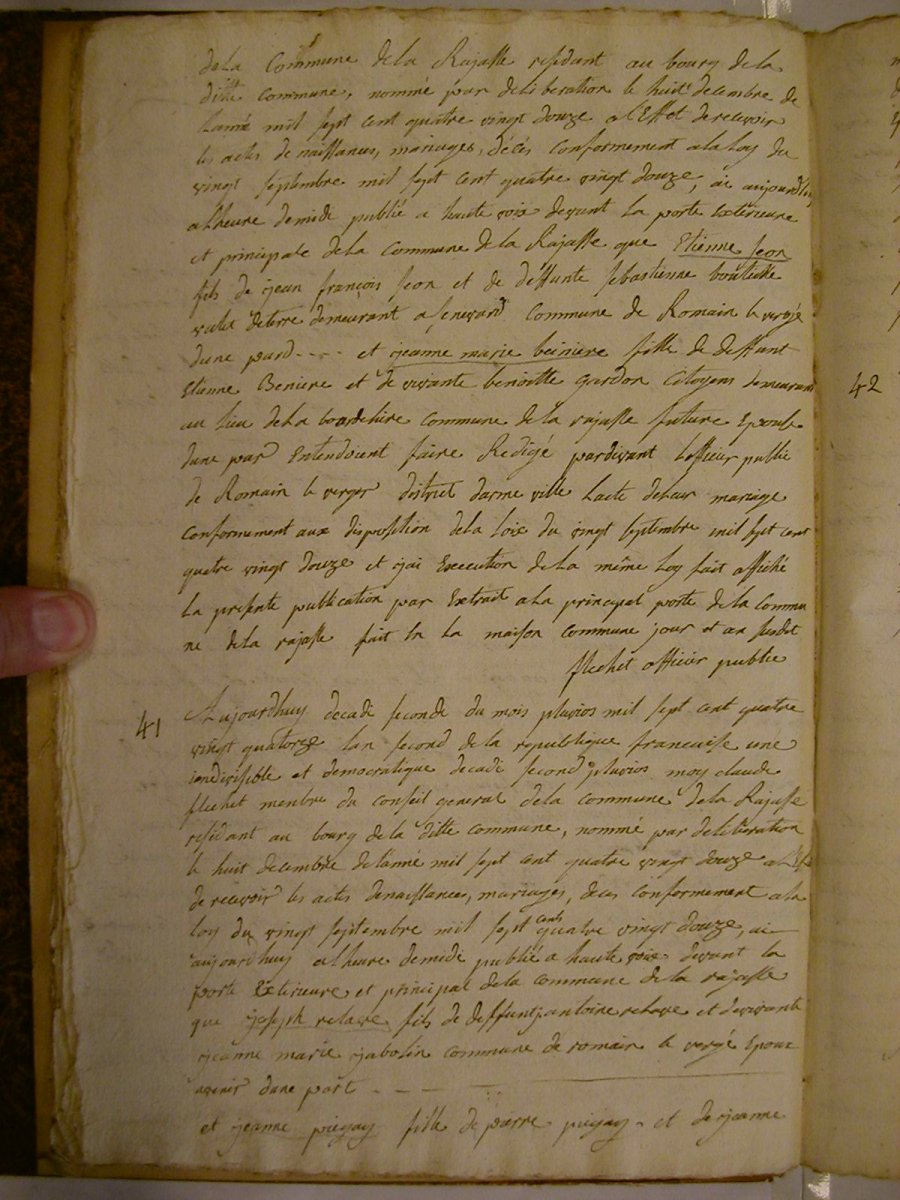 de La Commune de la Rajasse residant au bourg de la
ditte commune, nommé par deliberation le huit decembre de
lanné mil sept cent quatre vingt douze a l'Effet de recevoir
les actes de naissances, mariages, décés conformement a la Loy du
vingt septembre mil sept cent quatre vingt douze, ai aujourdhuy
a lheure de midi publié a haute voix devant la porte Exterieure
et principale de la Commune de la Rajasse que Etienne jeon
fils de jean françois jeon et de deffunte sebastienne
valet de terre demeurant a Commune de Romain le vergé
dune pard - - - - et jeanne marie beiniere fille de deffunt
Etienne Beniere et de vivante benoitte gardon Citoyens demeurant
au lieu de la commune de la rajasse future Epouse
dune par Entendoient faire Redigé pardevant lofficier public
de Romain le verger district darme ville lacte de leur mariage
Conformement aux disposition de la loix du vingt septembre mil sept cent
quatre vingt douze et jai Execution de la même Loy fait affiché
La presente publication par Extrait a la principal porte de la Commu
ne de la rajasse fait En La maison commune jour et an susdit
flechet officier public
41 Aujourdhuy decadi seconde du mois pluvios mil sept cent quatre
vingt quatorze lan second de la republique francaise une
indivisible et democratique decadi second pluvios moy claude
flechet menbre du conseil general de la commune de la Rajasse
residant au bourg de la ditte commune, nommé par deliberation
le huit decembre de lanné mil sept cent quatre vingt douze a
de recevoir les actes de naissances, mariages, deces conformement a la
loy du vingt septembre mil sept cents quatre vingt douze, ai
aujourdhuy a lheure de midi publié a haute voix devant la
porte Exterieure et principal de la commune de la rajasse
que joseph relave fils de deffunt antoine relave et de vivante
jeanne marie jabolin commune de romain le vergé Epoux
avenir dune part - - - -
et jeanne piegay fille de pierre piegay et de jeanne
42